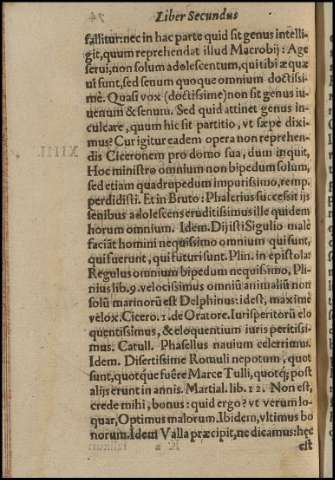 Liber Secundus
fallitur: nec in hac parte quid sit genus intelli-
git, quum reprehendat illud Macrobij: Age
serui, non solum adolescentum, qui tibi æquæ
ui sunt, sed senum quoque omnium doctissi-
mè. Quasi vox (doctissime) non sit genus iu-
uenum & senum. Sed quid attinet genus in-
culcare, quum hic sit partitio, vt sæpè dixi-
mus? Cur igitur eadem opera non reprehen-
dis Ciceronem pro domo sua, dum inquit,
Hoc ministro omnium non bipedum solum,
sed etiam quadrupedum impurissimo, remp.
perdidisti. Et in Bruto: Phalerius successit ijs
senibus adolescens eruditissimus ille quidem
horum omnium. Idem. Dij isti Sigulio malè
faciāt homini nequissimo omnium qui sunt,
qui fuerunt, qui futuri sunt. Plin. in epistola:
Regulus omnium bipedum nequissimo, Pli-
nius lib. 9. velocissimus omniū animaliū non
solū marinorū est Delphinus: idest, maximè
velox. Cicero. 1. de Oratore. Iurisperitorū elo
quentissimus, & eloquentium iuris peritissi-
mus. Catull. Phasellus nauium celerrimus.
Idem. Disertissime Romuli nepotum, quot
sunt, quotque fuêre Marce Tulli, quotq; post
alijs erunt in annis. Martial. lib. 12. Non est,
crede mihi, bonus: quid ergo? vt verum lo-
quar, Optimus malorum. Ibidem, vltimus bo
norum. Idem Valla præcipit, ne dicamus: hęc
est